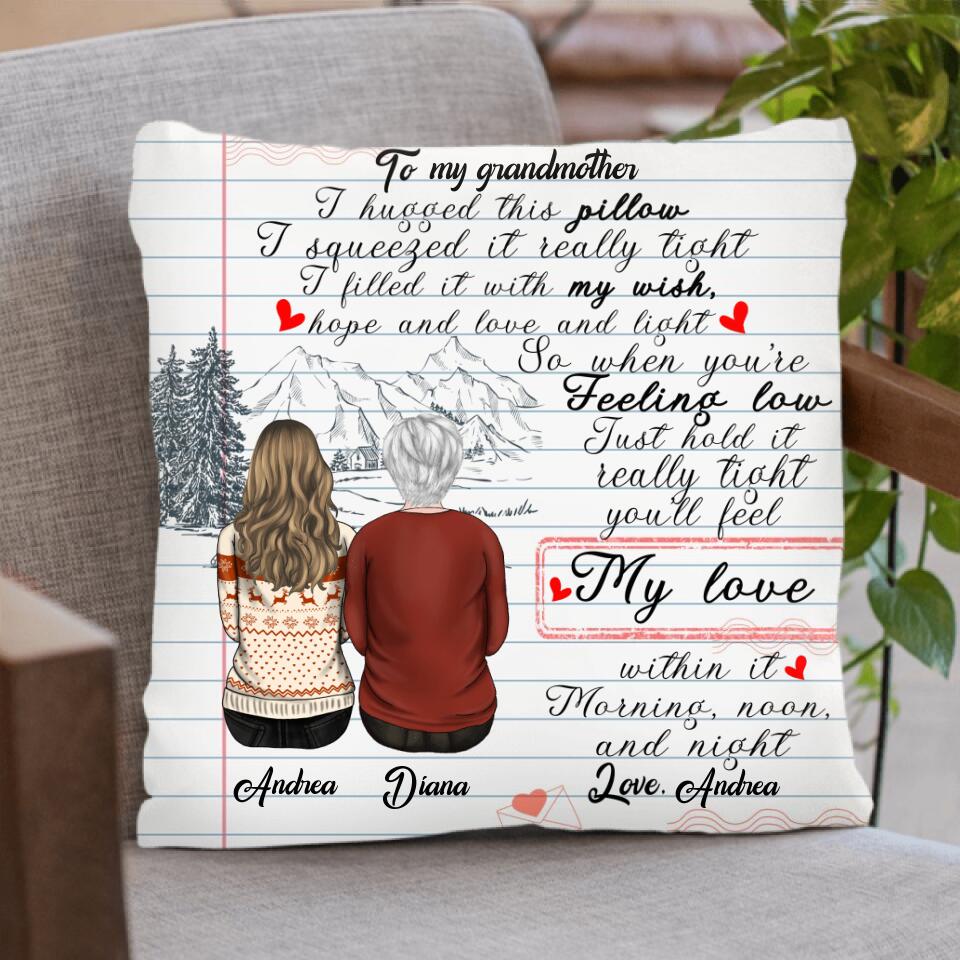 To my grandmother
I hugged this pillow
I squeezed it really tight
I filled it with my wish,
hope and love and light
So when you're
Feeling low
Just hold it
really tight
you'll feel
My love
within it
Morning, noon,
and night
Love. Andrea
Andrea Diana